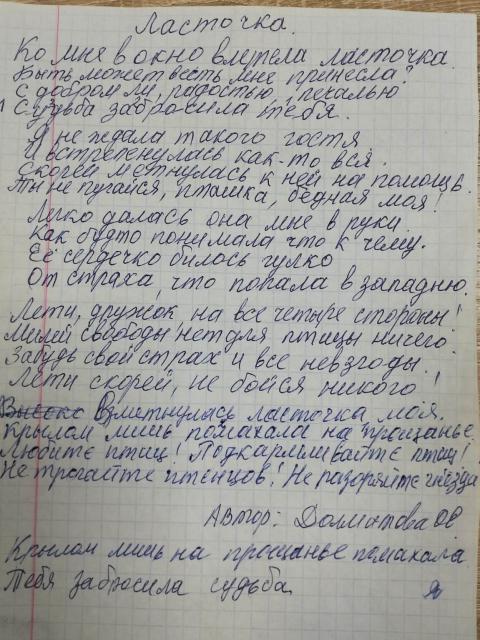 Ласточка.
Ко мне в окно влетела ласточка.
Быть может весть мне принесла?
С добром ли, радостью, печалью
Судьба забросила тебя.
Я не ждала такого гостя
И встрепенулась как-то вся.
Скорей метнулась к ней на помощь.
Ты не пугайся, пташка, бедная моя!
Легко далась она мне в руки.
Как будто понимала что к чему.
Её сердечко билось гулко
От страха, что попала в западню.
Лети, дружок, на все четыре стороны!
Милей свободы нет для птицы ничего.
Забудь свой страх и все невзгоды.
Лети скорей, не бойся никого!
Взметнулась ласточка моя.
Крылом лишь помахала на прощанье.
Любите птиц! Подкармливайте птиц!
Не трогайте птенцов! Не разоряйте гнёзда
Автор: Долматова ОВ
Крылом лишь на прощанье помахала
Тебя забросила судьба